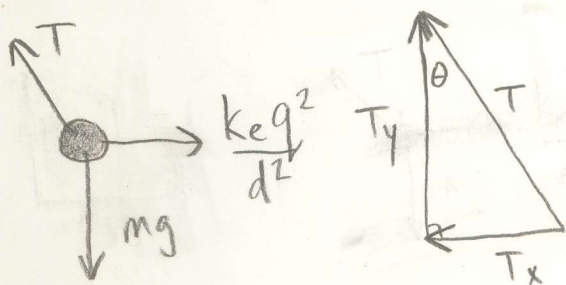 T
kₑq²
d²
mg
θ
T
Ty
Tx